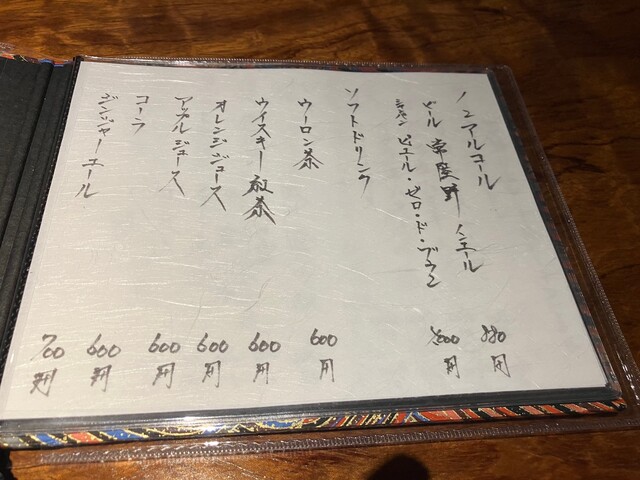 ノンアルコール
ビール 常陸野ノンエール 880円
シャンパン ピエール・ゼロ・ド・ブラン 800円
ソフトドリンク
ウーロン茶 600円
ウイスキー紅茶 600円
オレンジジュース 600円
アップルジュース 600円
コーラ 600円
ジンジャーエール 700円